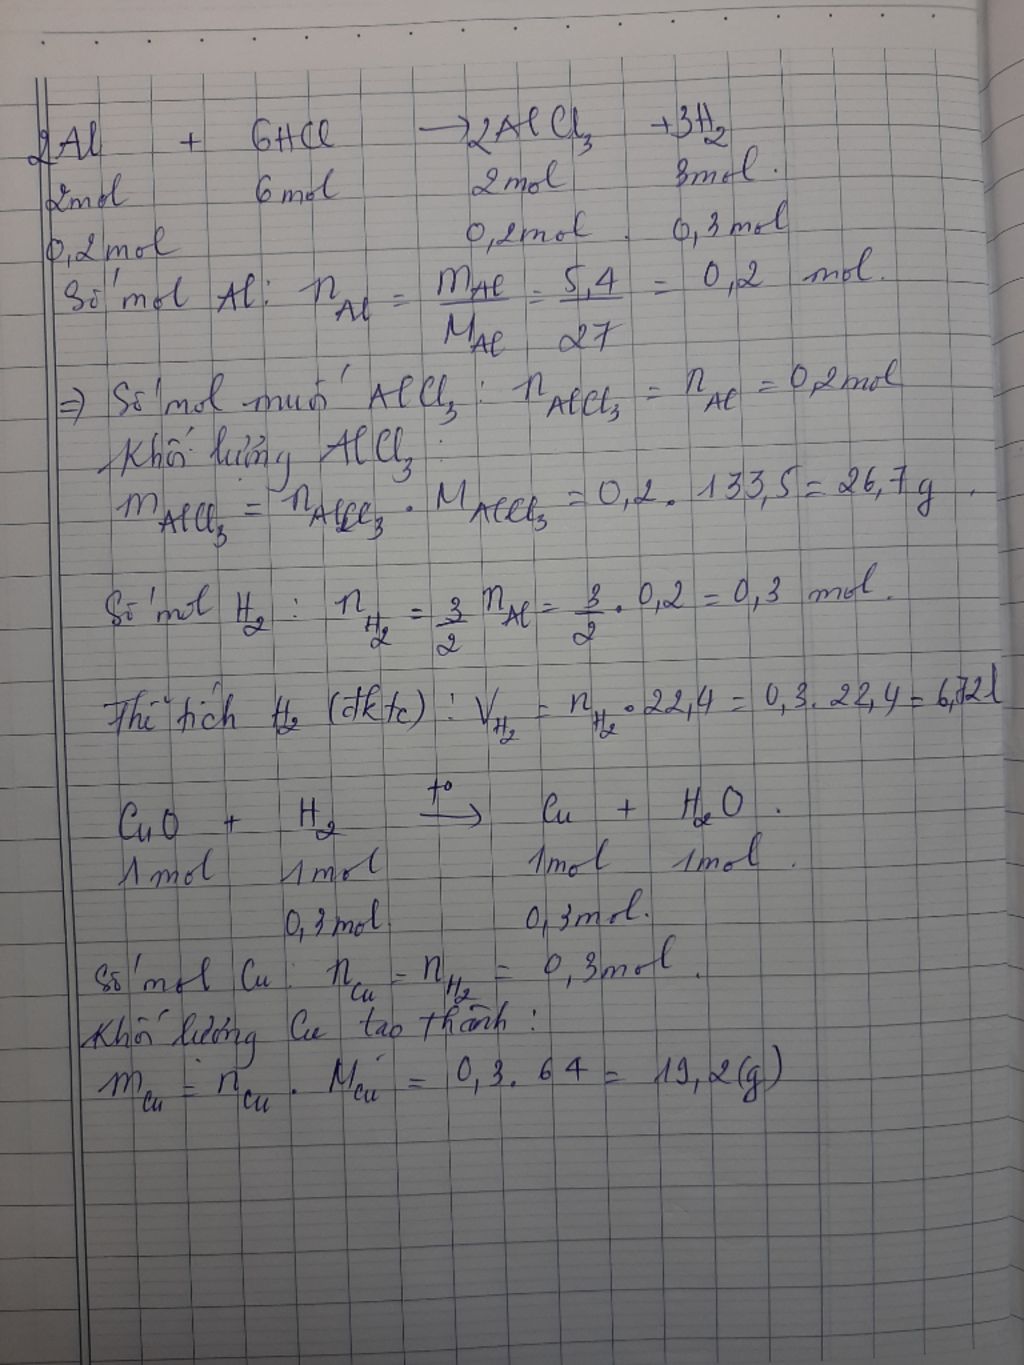 2Al + 6HCl → 2AlCl₃ + 3H₂
2mol 6mol 2mol 3mol.
0,2mol 0,2mol. 0,3mol
Số mol Al: n_Al = m_Al/M_Al = 5,4/27 = 0,2 mol.
⇒ Số mol muối AlCl₃ : n_AlCl₃ = n_Al = 0,2mol
Khối lượng AlCl₃ :
m_AlCl₃ = n_AlCl₃ . M_AlCl₃ = 0,2. 133,5 = 26,7g.
Số mol H₂ : n_H₂ = 3/2 n_Al = 3/2 . 0,2 = 0,3 mol.
Thể tích H₂ (đktc) : V_H₂ = n_H₂ . 22,4 = 0,3. 22,4 = 6,72l
CuO + H₂ t° → Cu + H₂O.
1mol 1mol 1mol 1mol.
0,3mol 0,3mol.
Số mol Cu: n_Cu = n_H₂ = 0,3mol.
Khối lượng Cu tạo thành:
m_Cu = n_Cu . M_Cu = 0,3. 64 = 19,2(g)